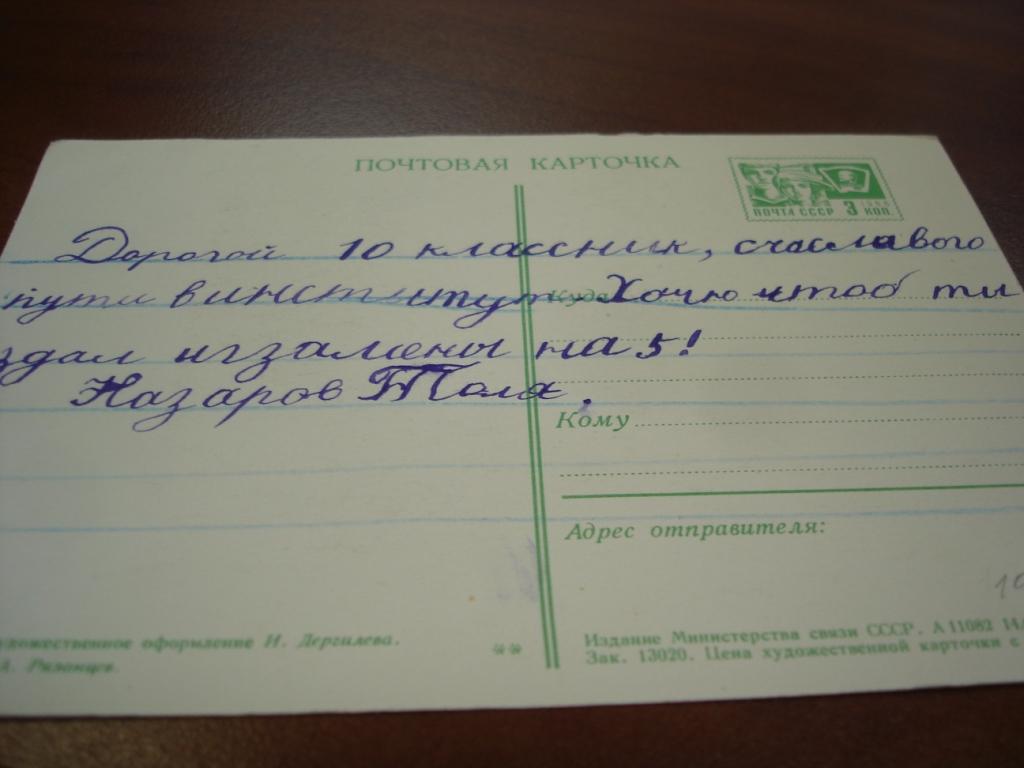 ПОЧТОВАЯ КАРТОЧКА
ПОЧТА СССР 3 КОП. 1966
Дорогой 10 классник, счаславого
пути в инстытут Хочю чтоб ти
здал игзамены на 5!
Назаров Толя.
Куда
Кому
Адрес отправителя:
удожественное оформление И. Дергилева.
А. Рязанцев.
**
Издание Министерства связи СССР. А 11082
Зак. 13020. Цена художественной карточки с